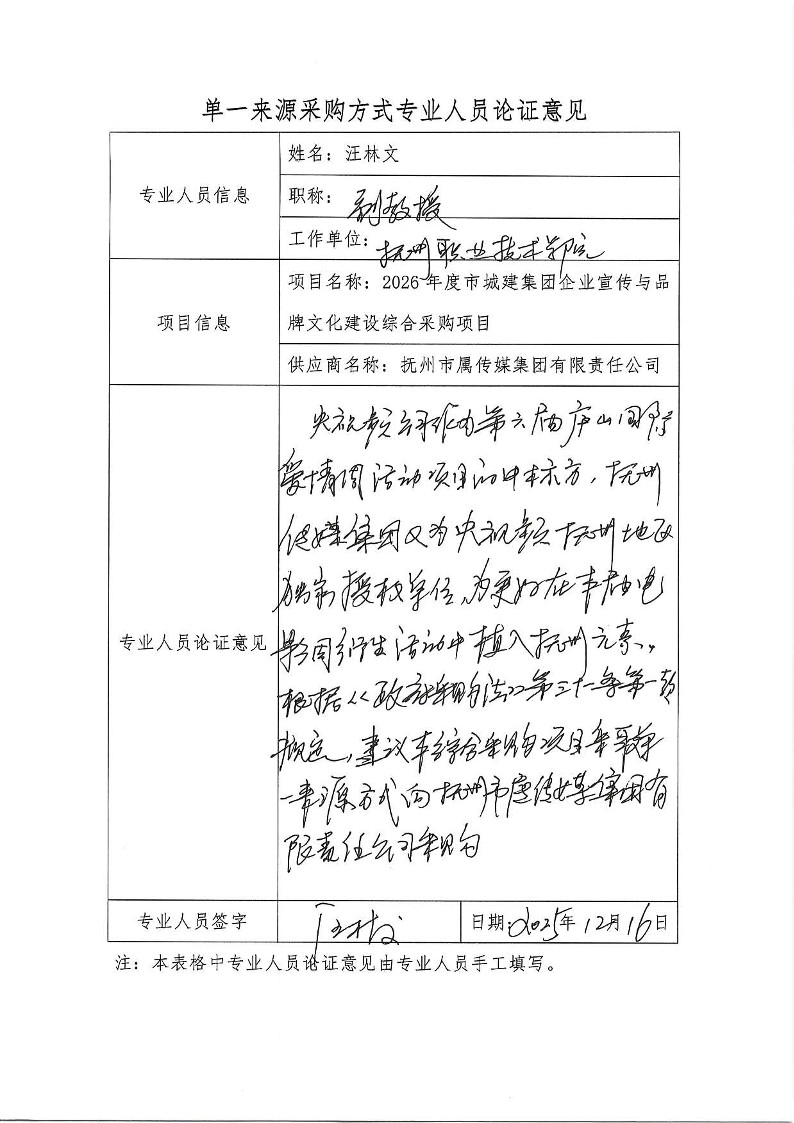 单一来源采购方式专业人员论证意见
专业人员信息
姓名：汪林文
职称：副教授
工作单位：抚州职业技术学院
项目信息
项目名称：2026年度市城建集团企业宣传与品
牌文化建设综合采购项目
供应商名称：抚州市属传媒集团有限责任公司
专业人员论证意见
央视频公司作为第六届庐山国际
爱情周活动项目的中标方，抚州
传媒集团又为央视频抚州地区
独家授权单位，为更好在本届电
影周衍生活动中植入抚州元素。
根据《政府采购法》第三十一条第一款
规定，建议本综合采购项目采取单
一来源方式向抚州市属传媒集团有
限责任公司采购
专业人员签字
汪林文
日期：2025年12月16日
注：本表格中专业人员论证意见由专业人员手工填写。